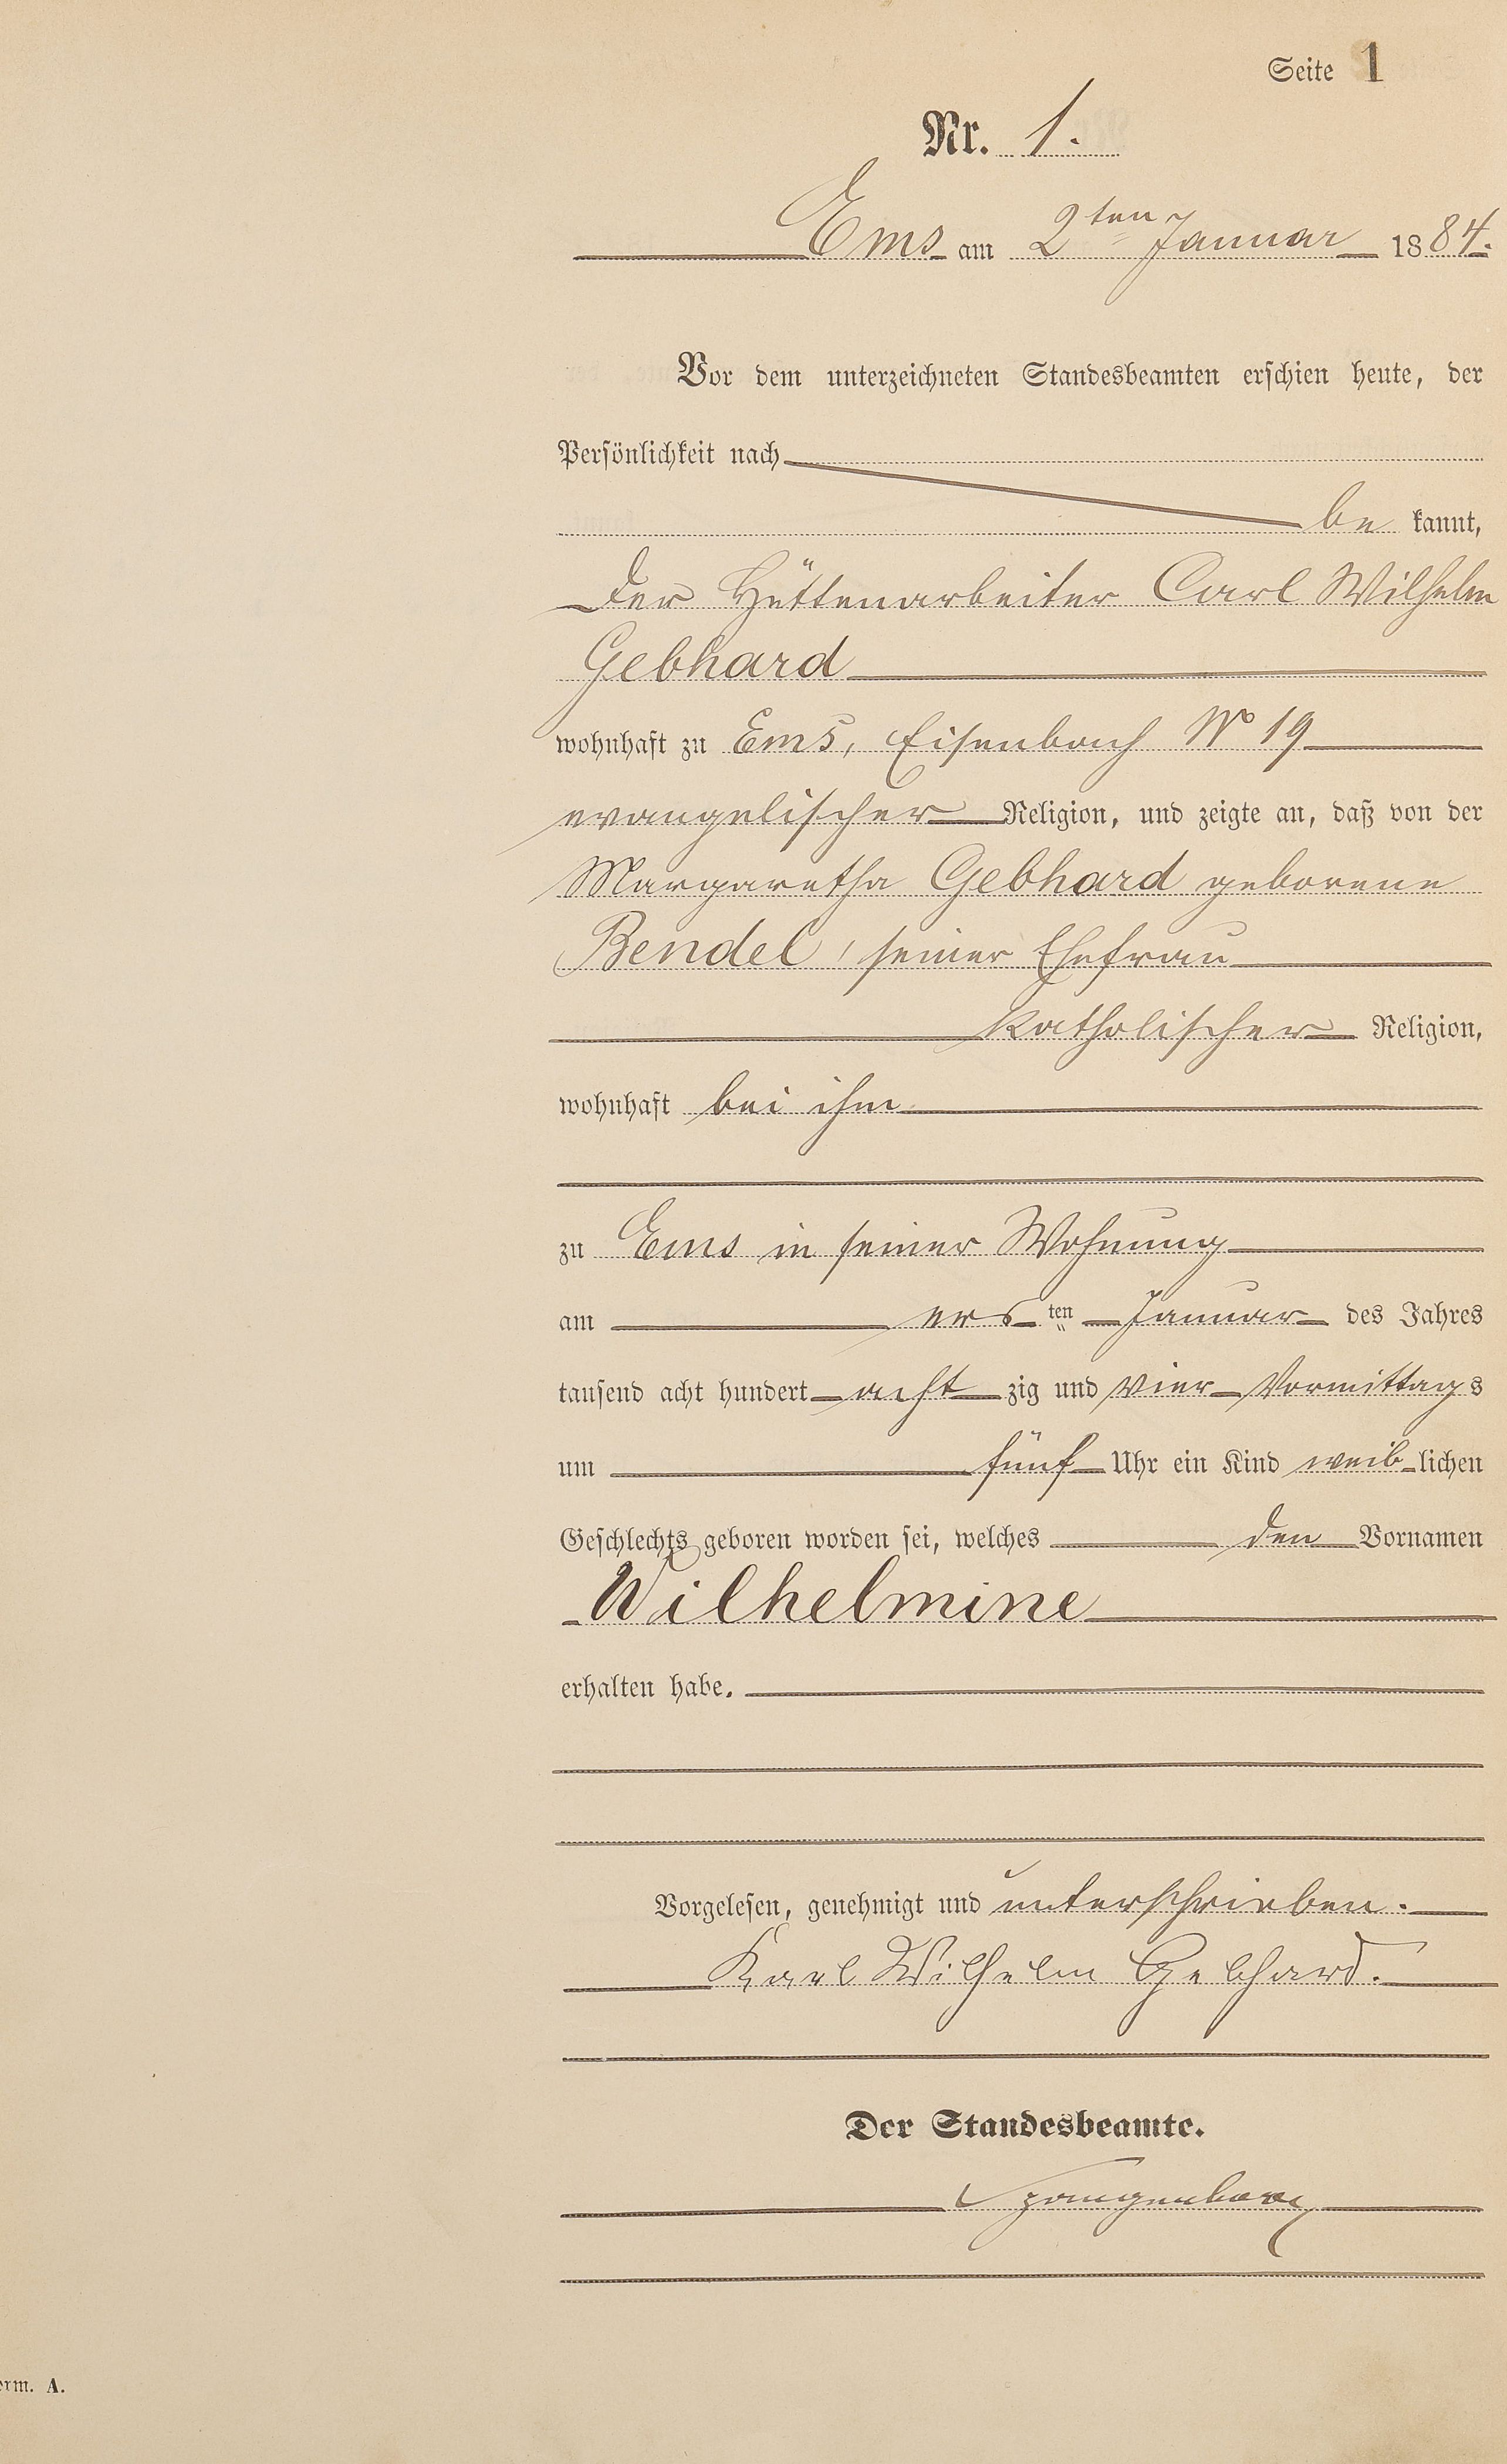 Seite 1
Nr. 1.
Ems am 2ten Januar 1884.
Vor dem unterzeichneten Standesbeamten erschien heute, der
Persönlichkeit nach
be kannt,
der Hüttenarbeiter Carl Wilhelm
Gebhard
wohnhaft zu Ems, Eisenbach No 19
evangelischer Religion, und zeigte an, daß von der
Margaretha Gebhard geborene
Bendel, seiner Ehefrau
katholischer Religion,
wohnhaft bei ihm
zu Ems in seiner Wohnung
am ers ten Januar des Jahres
tausend acht hundert acht zig und vier Vormittags
um fünf Uhr ein Kind weib lichen
Geschlechts geboren worden sei, welches den Vornamen
Wilhelmine
erhalten habe.
Vorgelesen, genehmigt und unterschrieben.
Karl Wilhelm Gebhard.
Der Standesbeamte.
Spangenberg
orm. A.